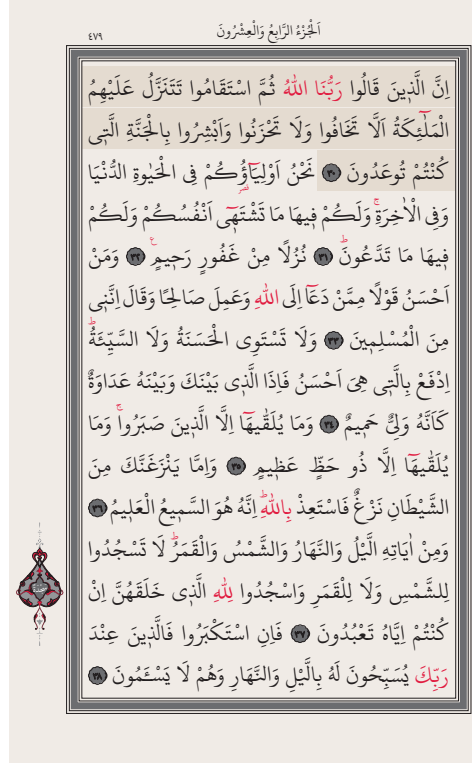 اَلْجُزْءُ الرَّابِعُ وَالْعِشْرُونَ
٤٧٩
اِنَّ الَّذٖينَ قَالُوا رَبُّنَا اللّٰهُ ثُمَّ اسْتَقَامُوا تَتَنَزَّلُ عَلَيْهِمُ
الْمَلٰٓئِكَةُ اَلَّا تَخَافُوا وَلَا تَحْزَنُوا وَاَبْشِرُوا بِالْجَنَّةِ الَّتٖى
كُنْتُمْ تُوعَدُونَ ﴿٣٠﴾ نَحْنُ اَوْلِيَٓاؤُ۬كُمْ فِى الْحَيٰوةِ الدُّنْيَا
وَفِى الْاٰخِرَةِۚ وَلَكُمْ فٖيهَا مَا تَشْتَهٖٓى اَنْفُسُكُمْ وَلَكُمْ
فٖيهَا مَا تَدَّعُونَؕ ﴿٣١﴾ نُزُلًا مِنْ غَفُورٍ رَحٖيمٍࣖ ﴿٣٢﴾ وَمَنْ
اَحْسَنُ قَوْلًا مِمَّنْ دَعَٓا اِلَى اللّٰهِ وَعَمِلَ صَالِحًا وَقَالَ اِنَّنٖى
مِنَ الْمُسْلِمٖينَ ﴿٣٣﴾ وَلَا تَسْتَوِى الْحَسَنَةُ وَلَا السَّيِّئَةُؕ
اِدْفَعْ بِالَّتٖى هِىَ اَحْسَنُ فَاِذَا الَّذٖى بَيْنَكَ وَبَيْنَهُ عَدَاوَةٌ
كَاَنَّهُ وَلِىٌّ حَمٖيمٌ ﴿٣٤﴾ وَمَا يُلَقّٰيهَٓا اِلَّا الَّذٖينَ صَبَرُواۚ وَمَا
يُلَقّٰيهَٓا اِلَّا ذُو حَظٍّ عَظٖيمٍ ﴿٣٥﴾ وَاِمَّا يَنْزَغَنَّكَ مِنَ
الشَّيْطَانِ نَزْغٌ فَاسْتَعِذْ بِاللّٰهِؕ اِنَّهُ هُوَ السَّمٖيعُ الْعَلٖيمُ ﴿٣٦﴾
وَمِنْ اٰيَاتِهِ الَّيْلُ وَالنَّهَارُ وَالشَّمْسُ وَالْقَمَرُؕ لَا تَسْجُدُوا
لِلشَّمْسِ وَلَا لِلْقَمَرِ وَاسْجُدُوا لِلّٰهِ الَّذٖى خَلَقَهُنَّ اِنْ
كُنْتُمْ اِيَّاهُ تَعْبُدُونَ ﴿٣٧﴾ فَاِنِ اسْتَكْبَرُوا فَالَّذٖينَ عِنْدَ
رَبِّكَ يُسَبِّحُونَ لَهُ بِالَّيْلِ وَالنَّهَارِ وَهُمْ لَا يَسْـَٔمُونَ ﴿٣٨﴾